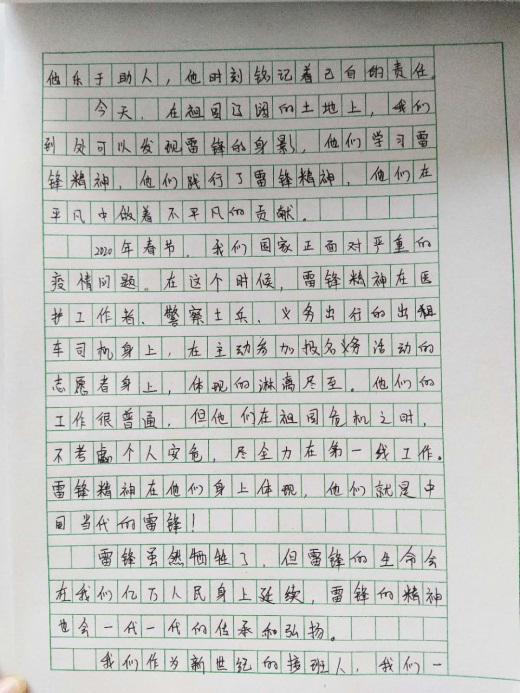 他乐于助人，他时刻铭记着己自的责任。
今天，在祖国辽阔的土地上，我们
到处可以发现雷锋的身影，他们学习雷
锋精神，他们践行了雷锋精神，他们在
平凡中做着不平凡的贡献。
2020年春节，我们国家正面对严重的
疫情问题。在这个时候，雷锋精神在医
护工作者、警察士兵、义务出行的出租
车司机身上，在主动参加报名义务活动的
志愿者身上，体现的淋漓尽至。他们的
工作很普通，但他们在祖国危机之时，
不考虑个人安危，尽全力在第一线工作。
雷锋精神在他们身上体现，他们就是中
国当代的雷锋！
雷锋虽然牺牲了，但雷锋的生命会
在我们亿万人民身上延续，雷锋的精神
也会一代一代的传承和弘扬。
我们作为新世纪的接班人，我们一